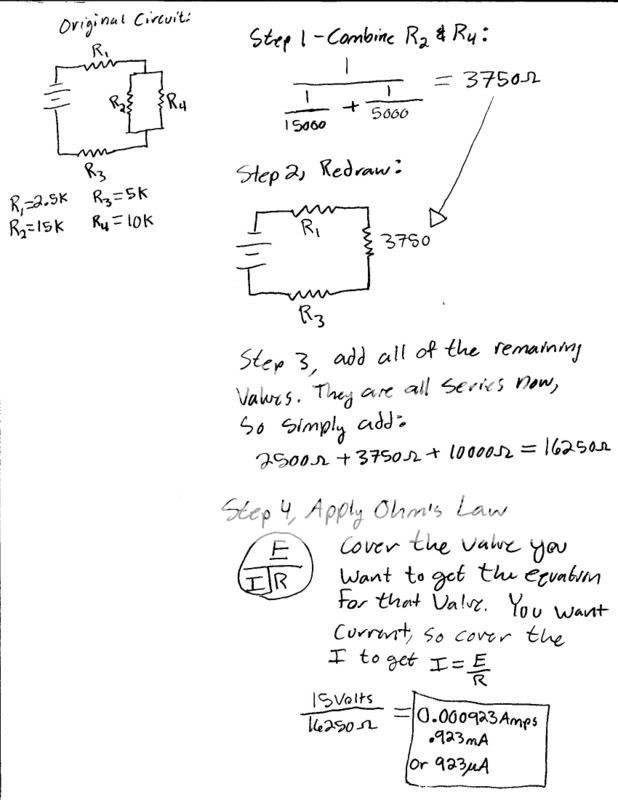 Original Circuit:
R₁
R₂
R₄
R₃
R₁=2.5K R₃=5K
R₂=15K R₄=10K
Step 1 - Combine R₂ & R₄:
1
1/15000 + 1/5000 = 3750Ω
Step 2, Redraw:
R₁
3750
R₃
Step 3, add all of the remaining
Values. They are all series now,
So simply add:
2500Ω + 3750Ω + 10000Ω = 16250Ω
Step 4, Apply Ohm's Law
E
I R
Cover the value you
Want to get the equation
For that Value. You want
Current, so cover the
I to get I = E/R
15 Volts
16250Ω
= 0.000923 Amps
.923mA
or 923µA